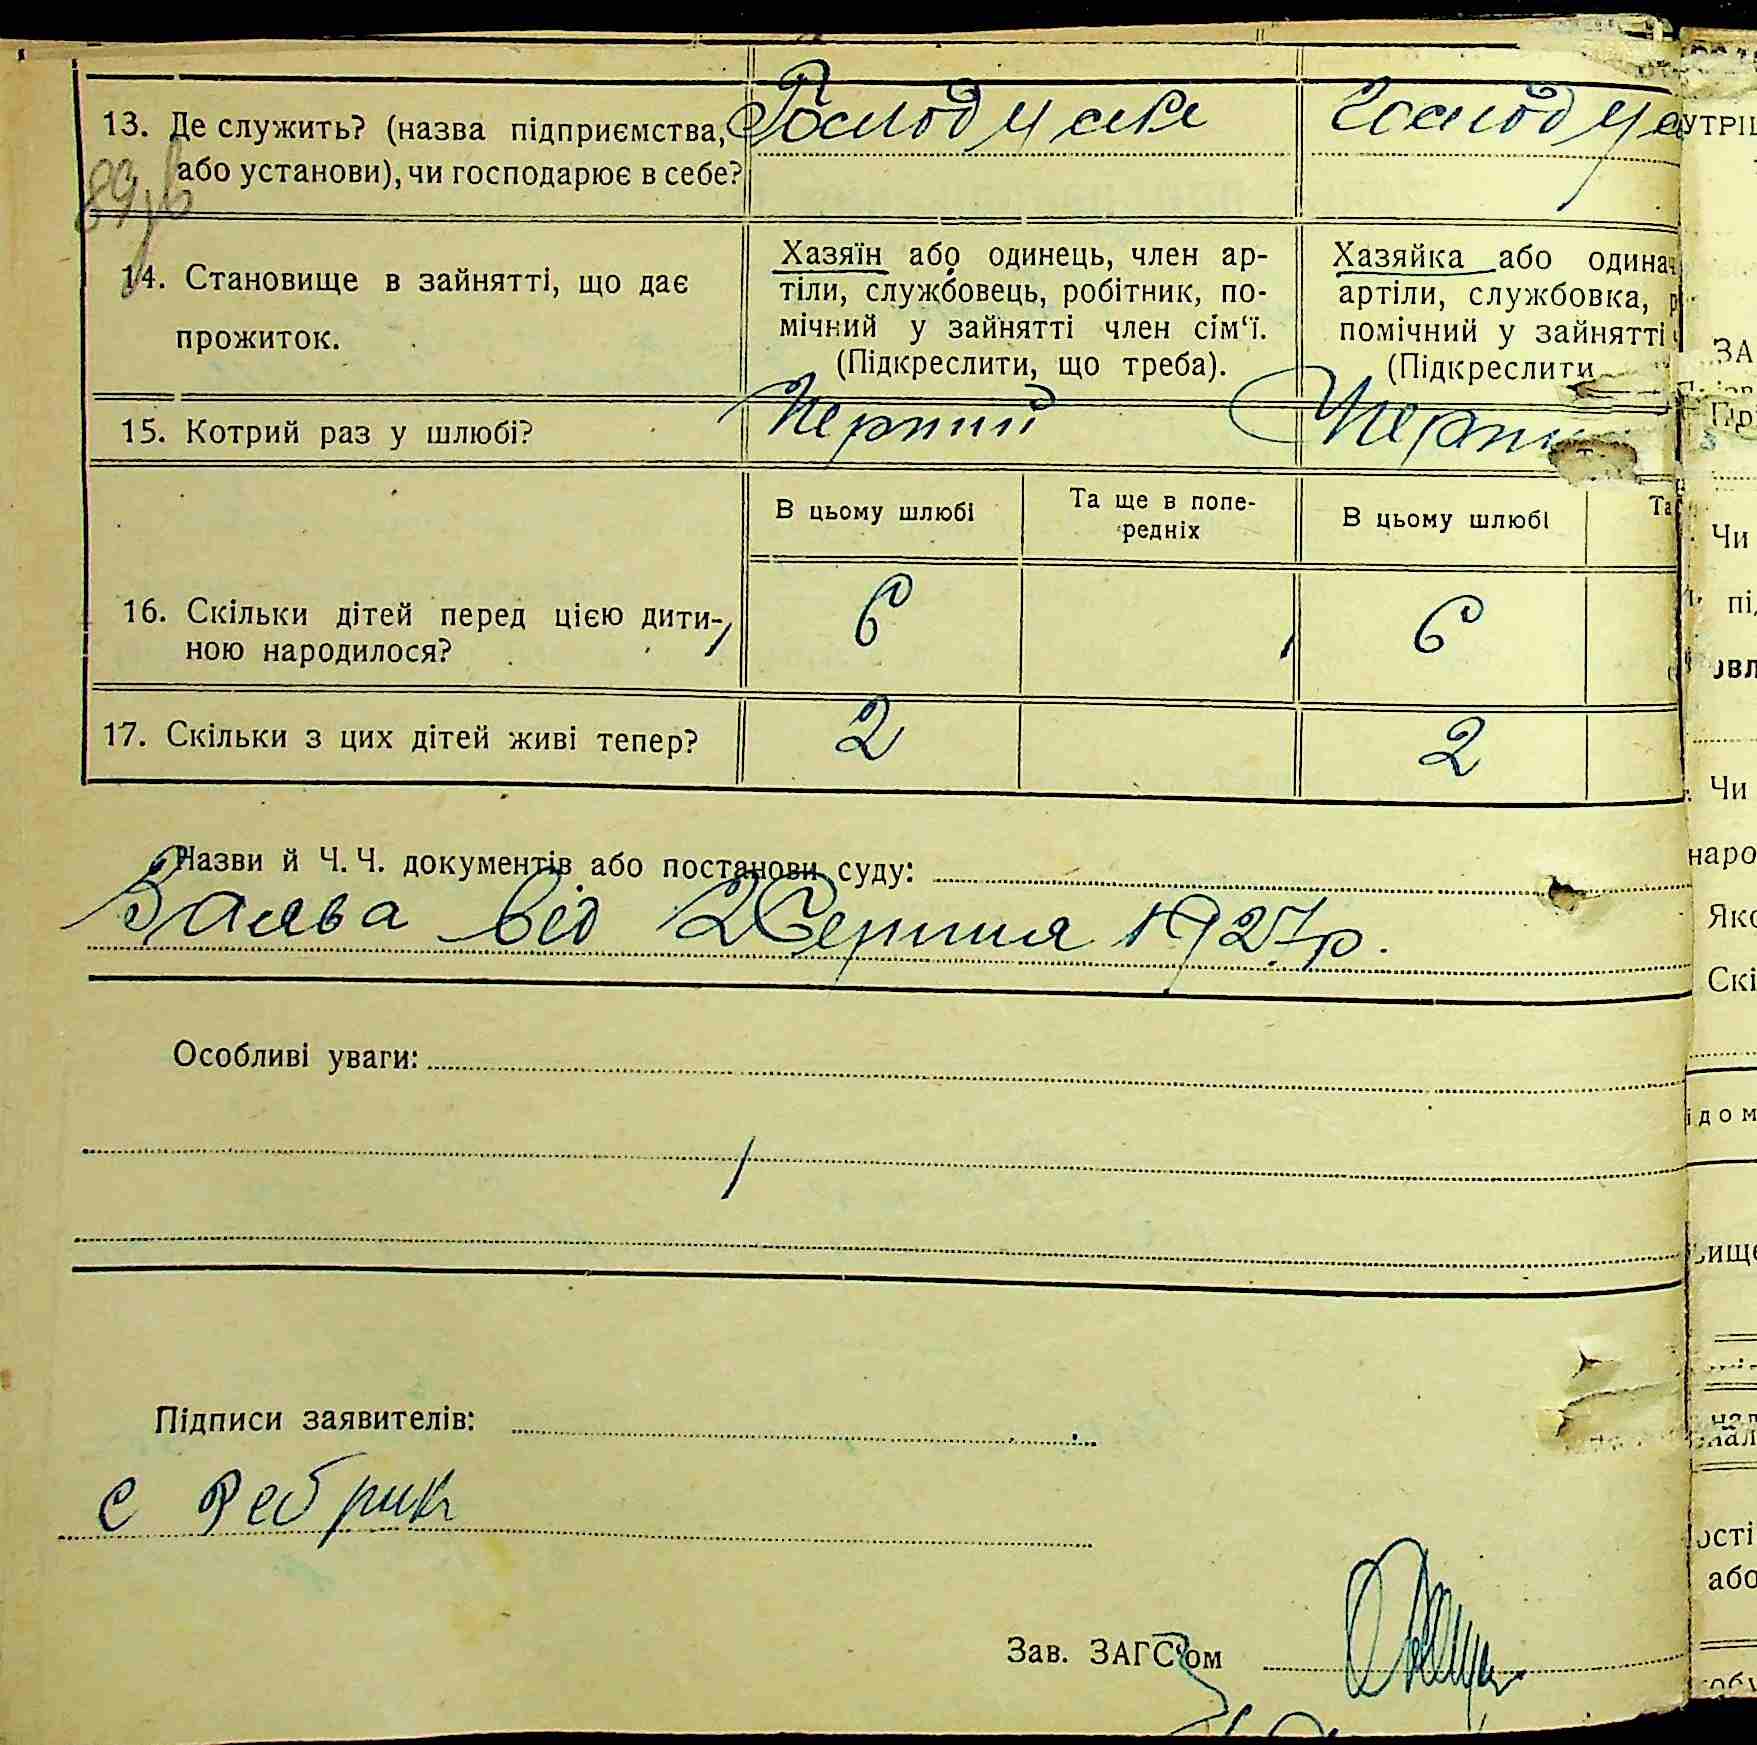 13. Де служить? (назва підприємства, Господ у себе Господ у се
або установи), чи господарює в себе?
89зв
14. Становище в зайнятті, що дає прожиток.
Хазяїн або одинець, член ар-
тіли, службовець, робітник, по-
мічний у зайнятті член сім‘ї.
(Підкреслити, що треба).
Хазяйка або одинач
артіли, службовка, р
помічний у зайнятті ч
(Підкреслити
15. Котрий раз у шлюбі? Перший Перши
В цьому шлюбі
Та ще в попе-
редніх
В цьому шлюбі
Та
16. Скільки дітей перед цією дити-
ною народилося?
6 6
17. Скільки з цих дітей живі тепер? 2 2
Назви й Ч. Ч. документів або постанови суду:
Заява від 2 Серпня 1927 р.
Особливі уваги:
Підписи заявителів:
с Ребрик
Зав. ЗАГС‘ом
УТРІШ
ЗА
Чи
Чи
наро
Яко
Скі
ідом
ості
або